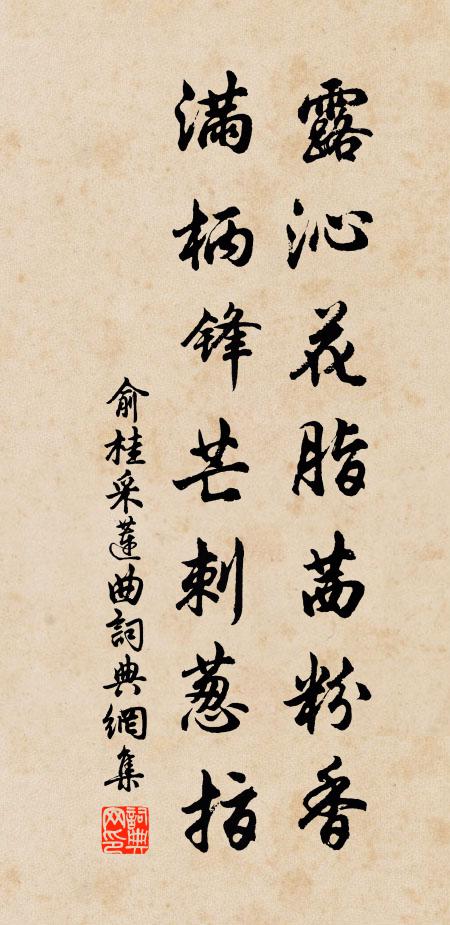 露沁花脂茜粉香
满柄锋芒刺葱指
俞桂采蓮曲詞典網集
詞典网印